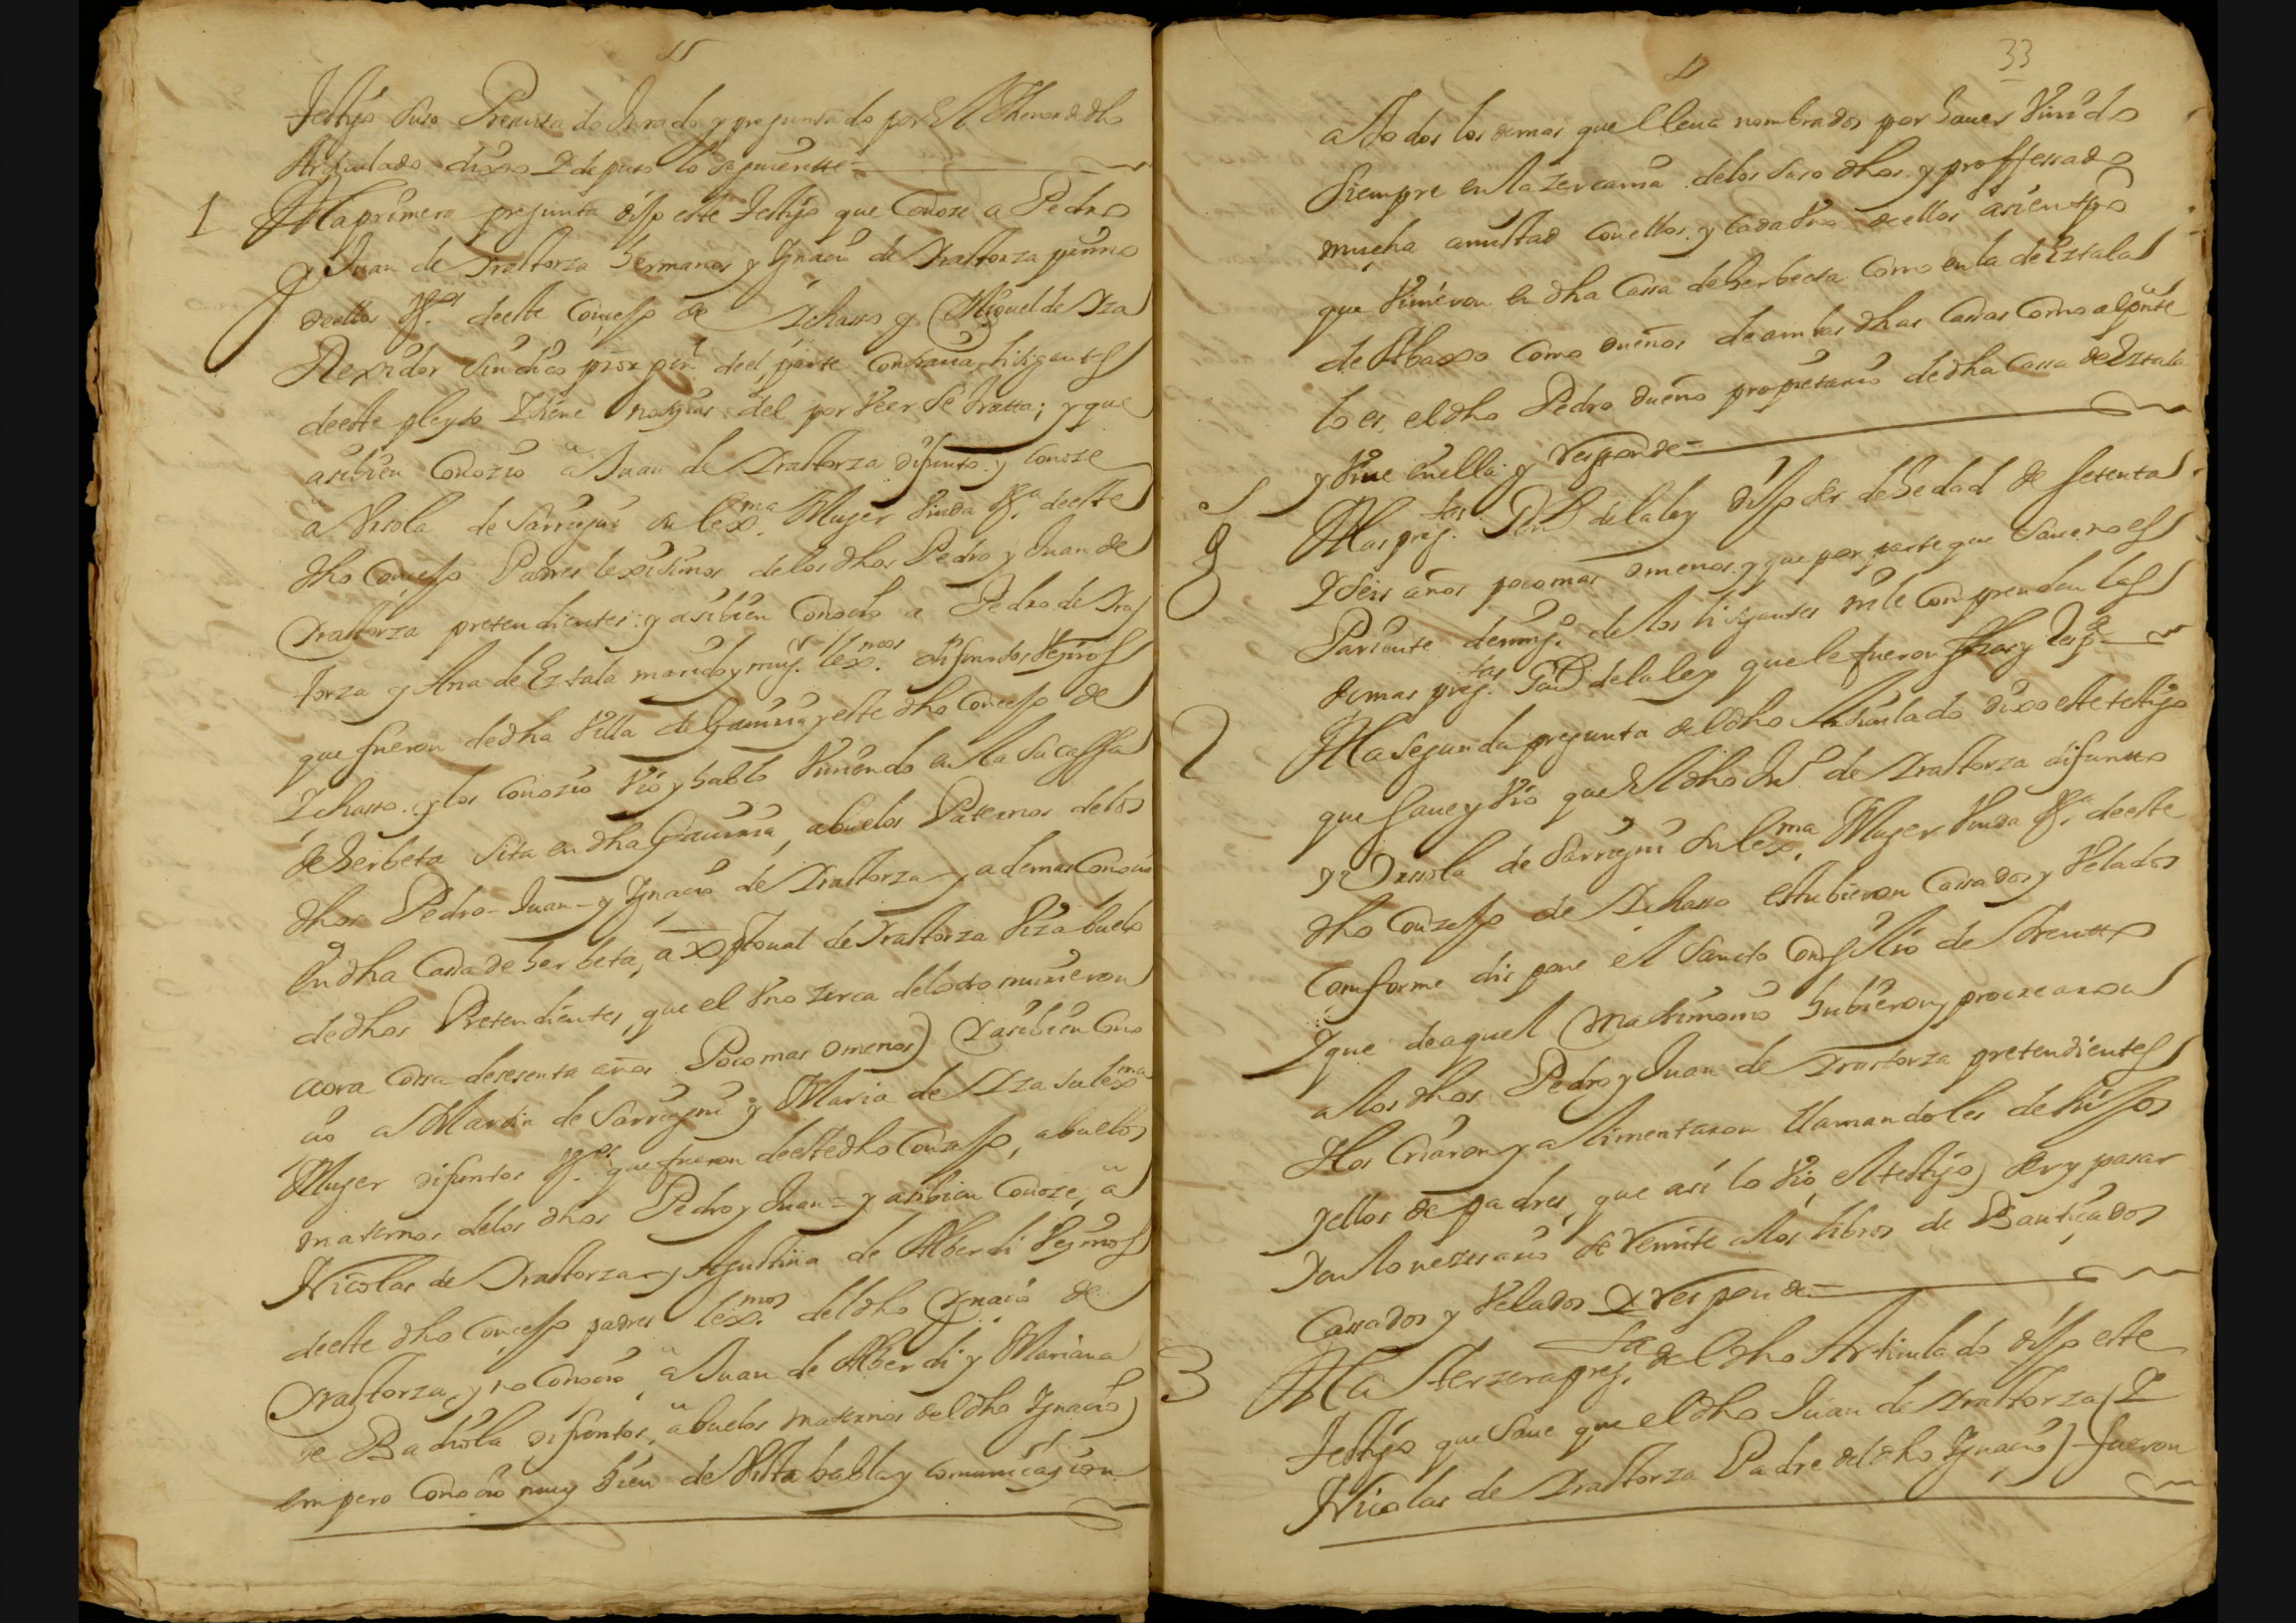 testigo suso Presentado Jurado y preguntado por el thenor de dho
Articulado dixo I depuso lo seguiente
1 A la primera pregunta dijo este testigo que Conoze a Pedro
y Juan de Irastorza hermanos y Ygnacio de Irastorza primo
de ellos Vs.os de este Conçejo de Ichasso y Miguel de Iza
Rexidor Sindico prior de el, parte Contraria litigantes
de este pleyto I tiene notiçias del por Veer se tratta; y que
asibien Conozio a Juan de Irastorza difunto y Conoze
a Ursola de Sarrigui su lex.ma Muger Viuda Vs.a de este
dho Conçejo Padres lexitimos de los dhos Pedro y Juan de
Irastorza pretendientes: y asibien Conocio a Pedro de Iras
torza y Ana de Eztala marido y mug.r lex.mos difuntos Veçinos
que fueron de dha Villa de Gaviria y este dho Conçejo de
Ichasso. y los Conozio Vio y hablo Viviendo en la su cassa
de herbeta Sita en dha Gaviria, abuelos Paternos de los
dhos Pedro - Juan - y Ygnacio de Irastorza y ademas Conocio
en dha Cassa de herbeta, a Xpstoual de Irastorza Vizabuelo
de dhos Pretendientes, que el Uno zerca del otro murieron
aora Cossa de sesenta años Poco mas omenos) I asibien Cono
cio a Martin de Sarrigui y Maria de Iza su lex.ma
Muger difuntos Vs.os que fueron de este dho Conzejo, abuelos
maternos de los dhos Pedro y Juan = y asibien Conoze, a
Nicolas de Irastorza y Agustina de Alberdi Veçinos
de este dho Conçejo padres lex.mos del dho Ygnacio de
Irastorza, y no Conocio a Juan de Alberdi y Mariana
de Badiola difuntos, abuelos maternos del dho Ygnacio)
empero Conocio muy bien de Vista habla y Comunicaçion
33
a todos los demas que lleua nombrados por hauer Viuido
siempre en la zercania de los suso dhos. y proffessado
mucha amistad con ellos. y Cada Uno de ellos asientpo
que Vivieron en dha Cassa de herbeta Como en la de Eztala
de Abaxo Como dueños de ambas dhas Cassas Como al pnte
lo es, el dho Pedro dueño propietario de dha Cassa de Eztala
y Viue en ella: y responde =
A las preg.tas Gen.s de la ley dijo ser de hedad de setenta
I Seis años poco mas omenos. y que por parte que Saue no es
Pariente de ning.o de los litigantes ni le Comprenden las
demas preg.tas Gen.s de la ley que le fueron fhas y Resp.e
2 A la segunda pregunta del dho Articulado dixo este testigo
que saue y Vio que el dho Ju.o de Irastorza difuntto
y Urssola de Sarrigui su lex.ma Muger Viuda Vs.a de este
dho Conzejo de Ichasso estubieron Cassados y Velados
Conforme dispone el Sancto Conçilio de Trentto
I que de aquel Matrimonio hubieron y procrearon
a los dhos Pedro y Juan de Irastorza pretendientes
I los Criaron y alimentaron llamandoles de hijos
y ellos de padres, que asi lo Vio, el testigo) ser y pasar
I en lo nezesario se remite a los libros de Bautiçados
Cassados y Velados I responde =
3 A la terzera preg.ta del dho Articulado dijo este
testigo que Saue que el dho Juan de Irastorza (I
Nicolas de Irastorza Padre del dho Ygnacio) fueron